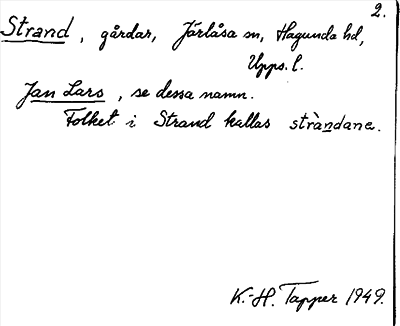 2.
Strand, gårdar, Järlåsa sn, Hagunda hd,
Upps. l.
Jan Lars, se dessa namn.
Folket i Strand kallas stràndane.
K.-H. Tapper 1949.